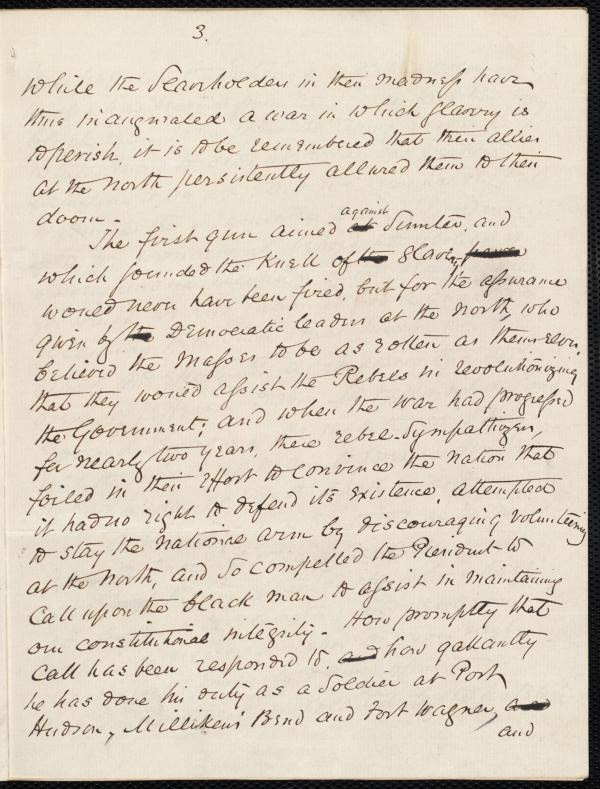 3.
While the Slaveholders in their madness have
thus inaugurated a war in which slavery is
to perish, it is to be remembered that their allies
at the North persistently allured them to their
doom.
against
The first gun aimed at Sumter, and
which sounded the Knell of the Slavery, power
would never have been fired, but for the assurance
given by the Democratic leaders at the North, who
believed the Masses to be as rotten as themselves,
that they would assist the Rebels in revolutionizing
the Government; and when the war had progressed
for nearly two years, these rebel-sympathizers,
foiled in their effort to convince the Nation that
it had no right to defend its existence, attempted
to stay the National arm by discouraging volunteering
at the North, and so compelled the President to
call upon the black man to assist in maintaining
our constitutional integrity. How promptly that
call has been responded to, and how gallantly
he has done his duty as a Soldier at Port
Hudson, Milliken's Bend and Fort Wagner, and
and